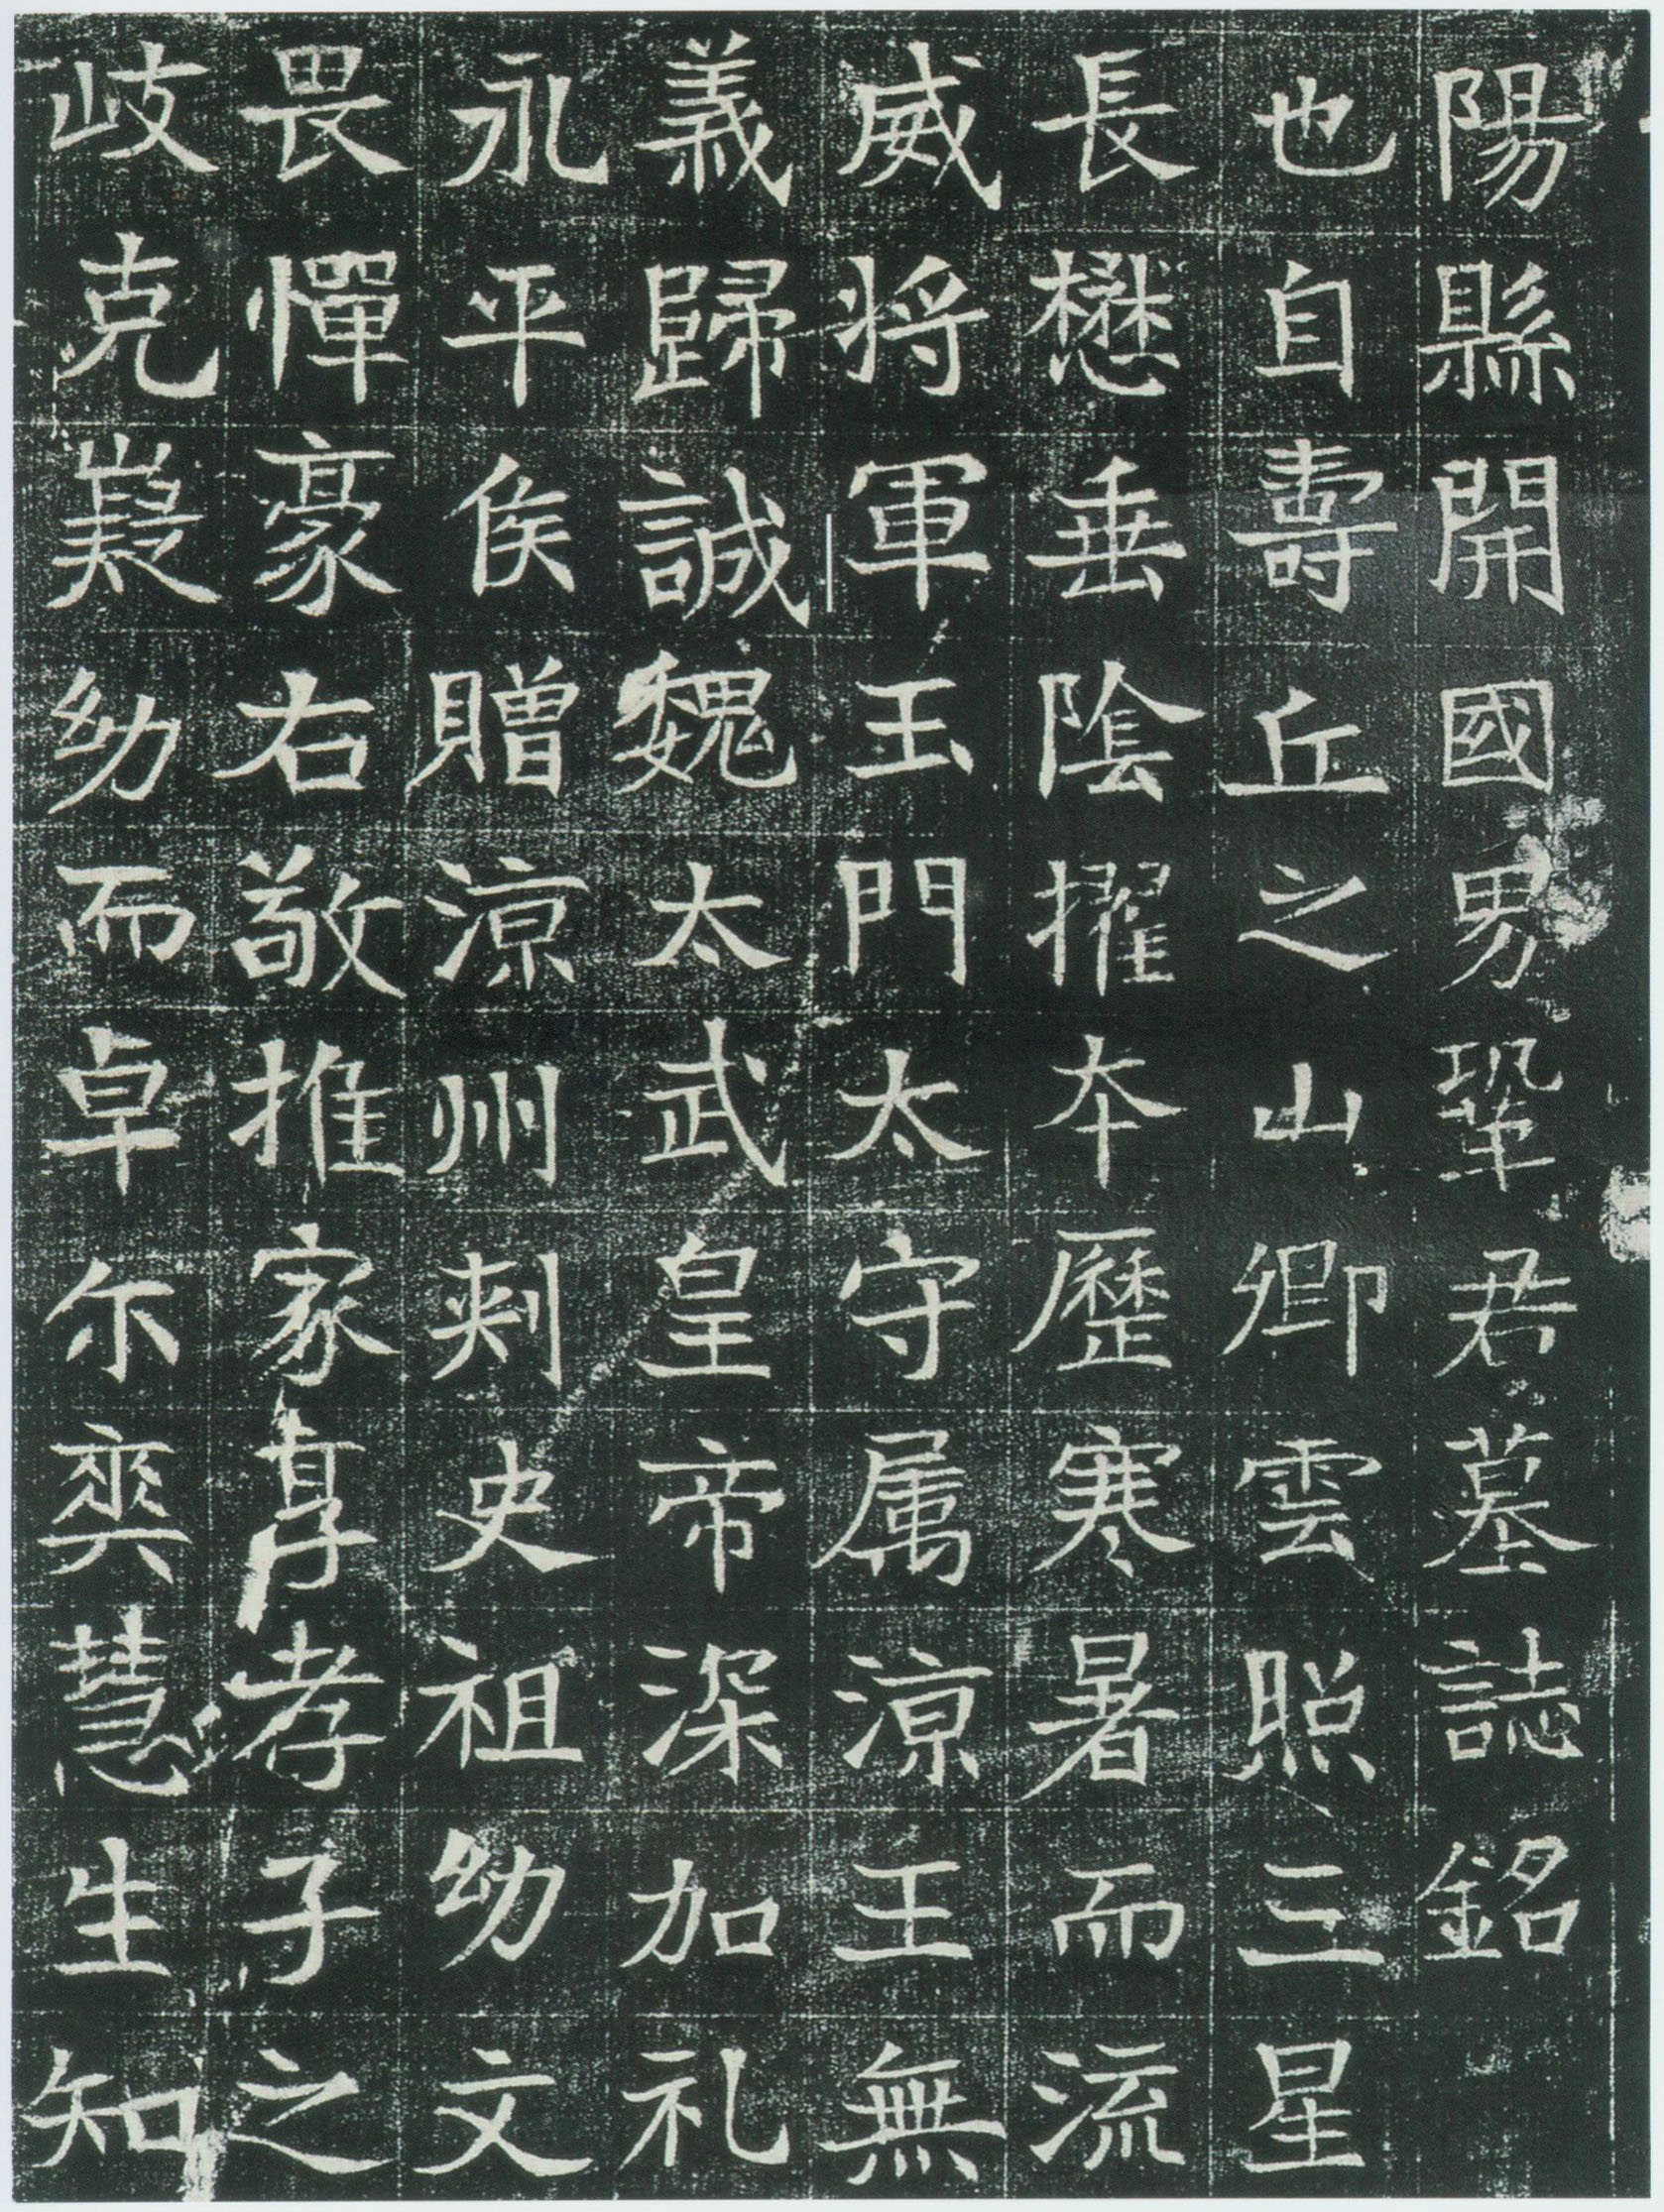 陽縣開國男鞏君墓誌銘
也自壽丘之山卿雲照三星
長懋垂陰擢本歷寒暑而流
威将軍玉門太守属涼王無
義歸誠魏太武皇帝深加礼
永平侯贈涼州刺史祖幼文
畏憚豪右敬推家享孝子之
岐克嶷幼而卓尒奕慧生知